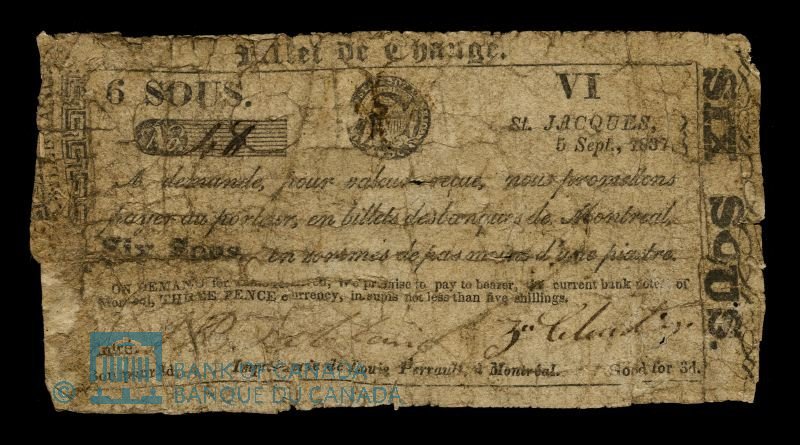 Billet de Change.
6 SOUS.
VI
No. 48
St. JACQUES,
5 Sept., 1837
A demande, pour valeur reçue, nous promettons
payer au porteur, en billets des banques de Montreal,
Six Sous, en sommes de pas moins d'une piastre.
ON DEMAND for value received, We promise to pay to bearer, in current bank notes of
Montreal, THREE PENCE currency, in sums not less than five shillings.
Imprimerie de Louis Perrault, à Montréal.
Good for 3d.
SIX SOUS.
© BANK OF CANADA
BANQUE DU CANADA